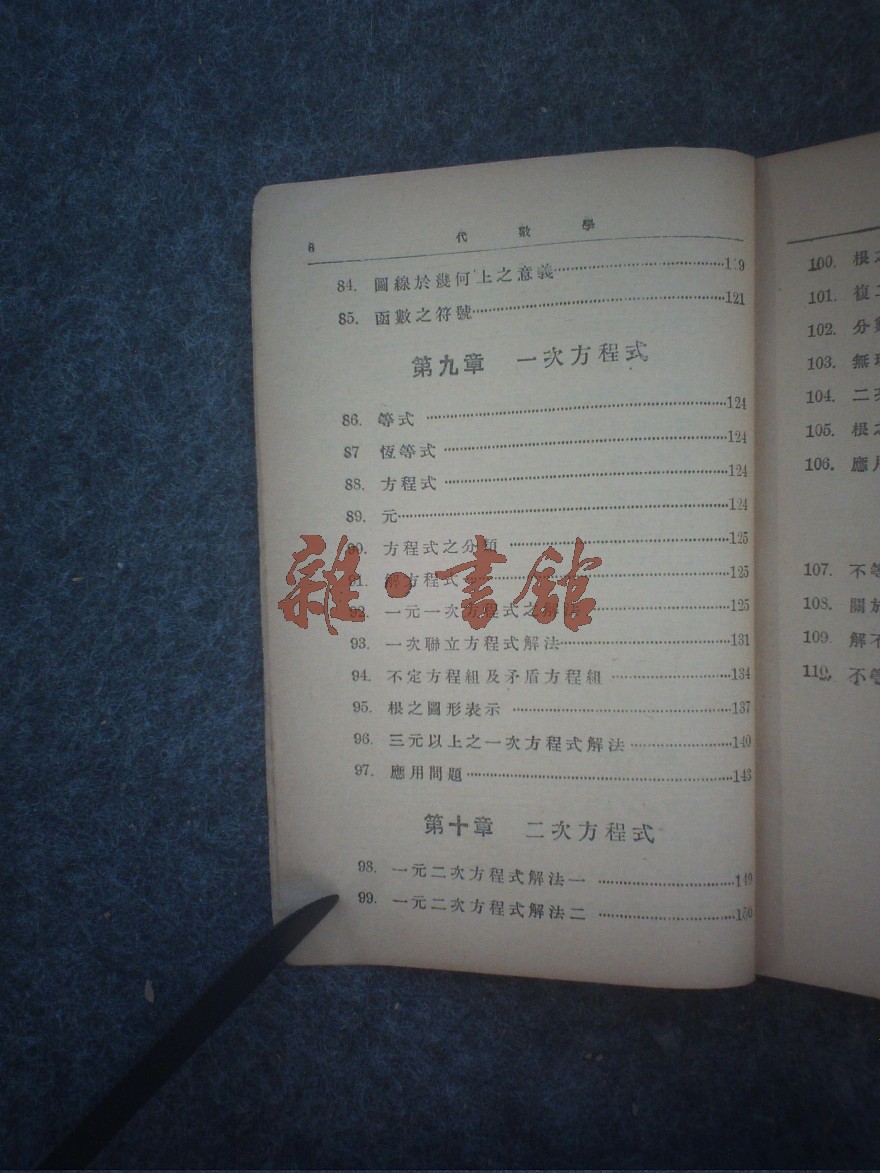 6 代數學
84. 圖線於幾何上之意義 119
85. 函數之符號 121
第九章 一次方程式
86. 等式 124
87 恆等式 124
88. 方程式 124
89. 元 124
90. 方程式之分類 125
91. 解方程式 125
92. 一元一次方程式之解法 125
93. 一次聯立方程式解法 131
94. 不定方程組及矛盾方程組 134
95. 根之圖形表示 137
96. 三元以上之一次方程式解法 140
97. 應用問題 143
第十章 二次方程式
98. 一元二次方程式解法一 149
99. 一元二次方程式解法二 150
雜·書館
100. 根
101. 複
102. 分
103. 無
104. 二
105. 根
106. 應
107. 不
108. 關於
109. 解不
110. 不等